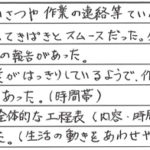 いさつや 作業の連絡等てい
てきぱきと スムーズだった。
の報告があった。
がはっきりしているようで、作
あった。(時間帯)
全体的な工程表(内容・時
た。(生活の動きをあわせや